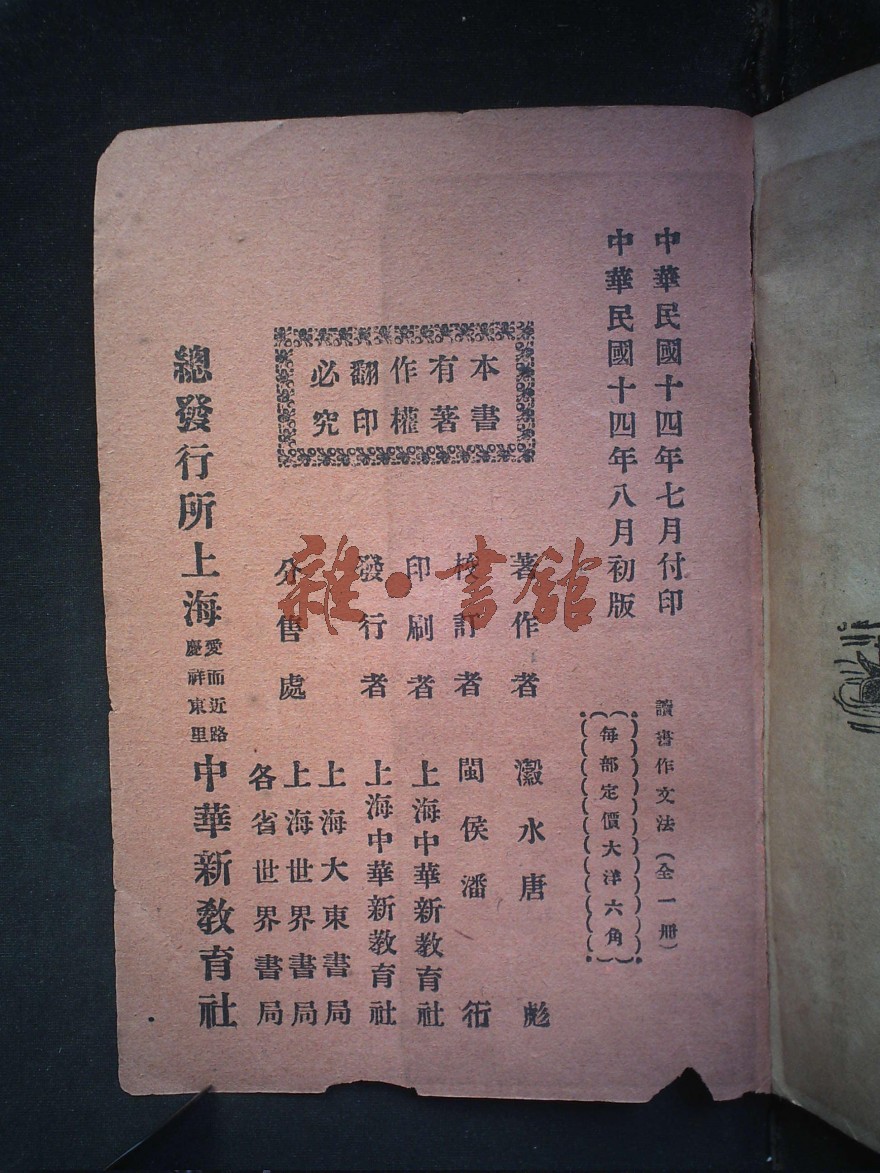 中華民國十四年七月付印
中華民國十四年八月初版
讀書作文法（全一冊）
每部定價大洋六角
本書
有著
作權
翻印
必究
著作者 瀫水唐彪
校訂者 閩侯潘衎
印刷者 上海中華新教育社
發行者 上海中華新教育社
分售處 上海大東書局
上海世界書局
各省世界書局
總發行所上海愛而近路慶祥東里中華新教育社
雜·書館